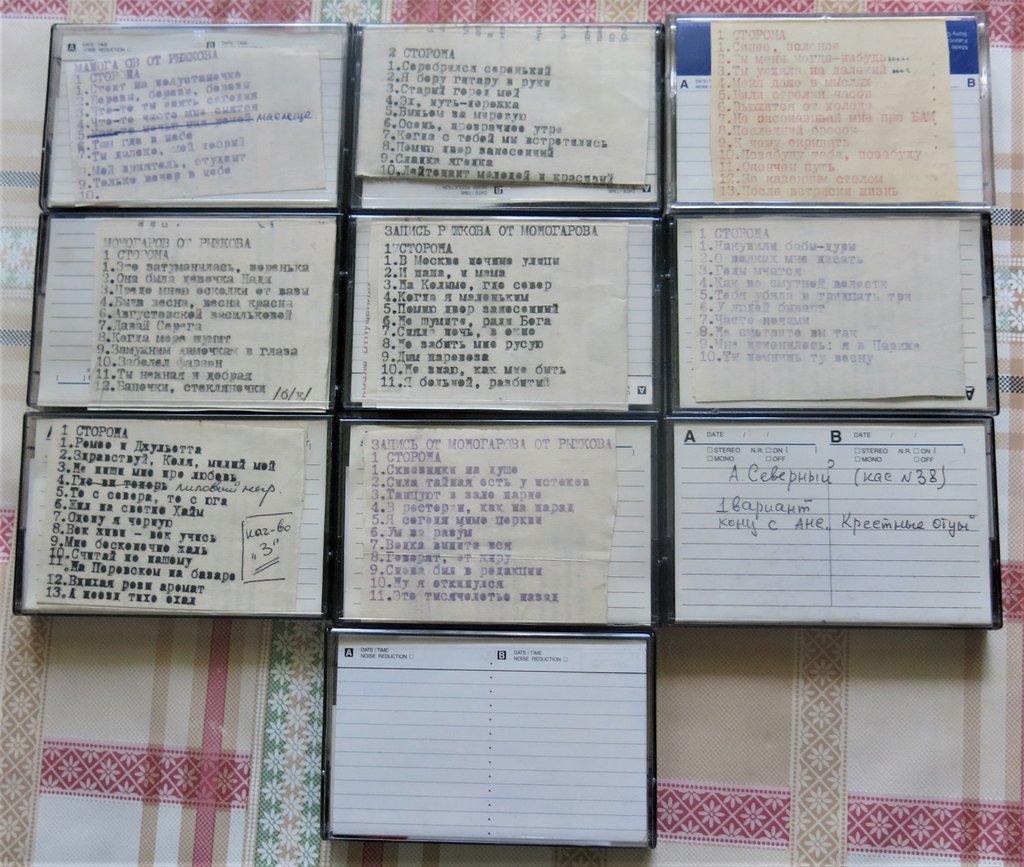 A DATE/TIME
NOISE REDUCTION
B
ОТ РЫЖКОВА
1 СТОРОНА
1.Стоит на полустаночке
2.Корова, берези, березы
3.Что-то ты опять сегодня
4.Что-то часто мне снится
5. масленица
6.Там где в небе
7.Ты далеко, мой добрый
8.Мой приятель, студент
9.Только вечер в небе
10.
2 СТОРОНА
1.Серебрился серенький
2.Я беру гитару в руки
3.Старый герой мой
4.Эх, путь-дорожка
5.Выпьем за мировую
6.Осень, прозрачное утро
7.Когда с тобой мы встретились
8.Помню двор занесенный
9.Сладка ягодка
10.Лейтенант молодой и красивый
A B
1 СТОРОНА
1.Синее, зеленое
2.Ты меня когда-нибудь
3.Ты уехала на далекий
4.Меня даже в мыслях
5.Били стрелки часов
6. от холода
7.Не рассказывай мне про БАМ
8.Последний бросок
9.К чему скривать
10.Позабуду тебя, позабуду
11.Окончен путь
12.За казенным столом
13.После встряски жизнь
МОМОГАРОВ ОТ РЫЖКОВА
1 СТОРОНА
1.Это затуманилась, зоренька
2.Она была девочка Надя
3.Предо мною осколки от вазы
4.Была весна, весна красна
5.Августовской васильковой
7.Давай Серега
8.Когда море шумит
9.Замужним дамочкам в глаза
10.Заболел фараон
11.Ты нежная и добрая
12.Баночки, стекляночки /б/к/
ЗАПИСЬ Р ЖКОВА ОТ МОМОГАРОВА
1 СТОРОНА
1.В Москве ночные улицы
2.И папа, и мама
3.На Колыме, где север
4.Когда я маленьким
5.Помню двор занесенный
6.Не шумите, ради Бога
7.Синяя ночь, в окно
8.Не забыть мне русую
9.Дым паровоза
10.Не знаю, как мне быть
11.Я больной, разбитый
1 СТОРОНА
1.Накупили бабы-дуры
2.О волках мне писать
3.Годы мчатся
4.Как во смутной волости
5.Тебя убили в тридцать три
6.У людей бывает
7.Часто ночами
8.Не смотрите вы так
9.Мне приснилось: я в Париже
10.Ты помнишь ту весну
1 СТОРОНА
1.Ромео и Джульетта
2.Здравствуй, Коля, милый мой
3.Не пиши мне про любовь
4.Где вы теперь лиловый негр.
5.То с севера, то с юга
6.Жил на свете Хайм
7.Одену я черную
8.Век живи - век учись
9.Мне бесконечно жаль
10.Считай по нашему
11.На Перовском на базаре
12.Вдихая рози аромат
13.А поезд тихо ехал
кач-во
"3"
ЗАПИСЬ ОТ МОМОГАРОВА ОТ РЫЖКОВА
1 СТОРОНА
1.Сквозняки на душе
2.Сила тайная есть у истоков
3.Танцуют в зале парно
4.В ресторан, как на парад
5.Я сегодня мимо церкви
6.Ум за разум
7.Водка випита вся
8.Говорят, от жиру
9.Снова был в редакции
10.Ну я откинулся
11.Это тысячелетье назад
A DATE / / B DATE / /
STEREO N.R. ON ( ) STEREO N.R. ON ( )
MONO OFF MONO OFF
А. Северный (кас N38)
1 вариант
конц с Анс. Крестные Отцы
A DATE/TIME
NOISE REDUCTION
B DATE/TIME
NOISE REDUCTION